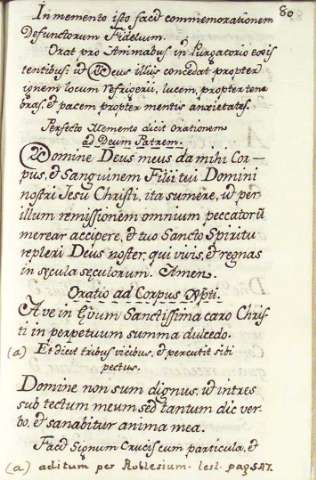 80
In memento isto facit commemorationem
Defunctorum Fidelium.
Orat pro Animabus in Purgatorio exis
tentibus, ut Deus illis concedat propter
ignem locum refrigerii, lucem, propter tene
bras, et pacem propter mentis anxietates.
Perfecto Memento dicit Orationem
ad Deum Patrem.
Domine Deus meus da mihi Cor-
pus, & Sanguinem Filii tui Domini
nostri Jesu Christi, ita sumere, ut per
illum remissionem omnium peccatorũ
merear accipere, & tuo Sancto Spiritu
repleri Deus noster, qui vivis, et regnas
in sęcula sęculorum. Amen.
Oratio ad Corpus Xp̃ti.
Ave in Sanctissima caro Chris
ti in perpetuum summa dulcedo.
(a) Et dicit tribus vicibus, et percutit sibi
pectus.
Domine non sum dignus, ut intres
sub tectum meum sed tantum dic ver
bo, & sanabitur anima mea.
Facit Signum Crucis cum particula, &
(a) aditum per Roblesium. pag 547.